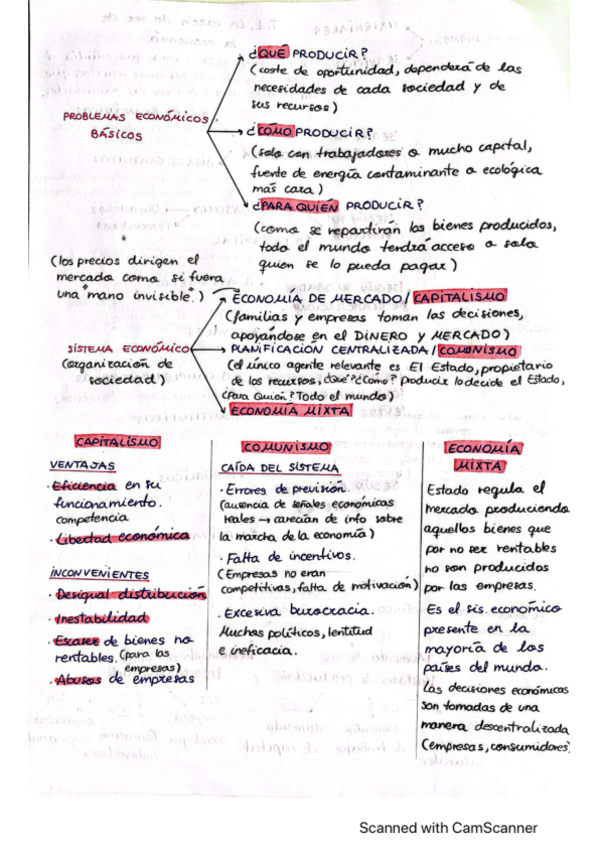 ¿QUÉ PRODUCIR?
(coste de oportunidad, dependerá de las
necesidades de cada sociedad y de
sus recursos)
PROBLEMAS ECONÓMICOS
BÁSICOS
¿CÓMO PRODUCIR?
(solo con trabajadores o mucho capital,
fuente de energía contaminante o ecológica
más cara)
¿PARA QUIÉN PRODUCIR?
(como se repartirán los bienes producidos,
todo el mundo tendrá acceso o solo
quien se lo pueda pagar)
(los precios dirigen el
mercado como si fuera
una "mano invisible".)
ECONOMÍA DE MERCADO/CAPITALISMO
(familias y empresas toman las decisiones,
apoyándose en el DINERO y MERCADO)
SISTEMA ECONÓMICO
(organización de
sociedad)
PLANIFICACIÓN CENTRALIZADA/COMUNISMO
(el único agente relevante es El Estado, propietario
de los recursos, ¿Qué? ¿Cómo? producir lo decide el Estado,
¿Para Quién? Todo el mundo)
ECONOMÍA MIXTA
CAPITALISMO
VENTAJAS
· Eficiencia en su
funcionamiento.
competencia
· Libertad económica
INCONVENIENTES
· Desigual distribución
· Inestabilidad
· Escasez de bienes no
rentables. (para las
empresas)
· Abusos de empresas
COMUNISMO
CAÍDA DEL SISTEMA
· Errores de previsión.
(ausencia de señales económicas
reales → carecían de info sobre
la marcha de la economía)
· Falta de incentivos.
(Empresas no eran
competitivas, falta de motivación)
· Excesiva burocracia.
Muchos políticos, lentitud
e ineficacia.
ECONOMÍA
MIXTA
Estado regula el
mercado produciendo
aquellos bienes que
por no ser rentables
no son producidos
por las empresas.
Es el sis. económico
presente en la
mayoría de los
países del mundo.
Las decisiones económicas
son tomadas de una
manera descentralizada
(empresas, consumidores)
Scanned with CamScanner